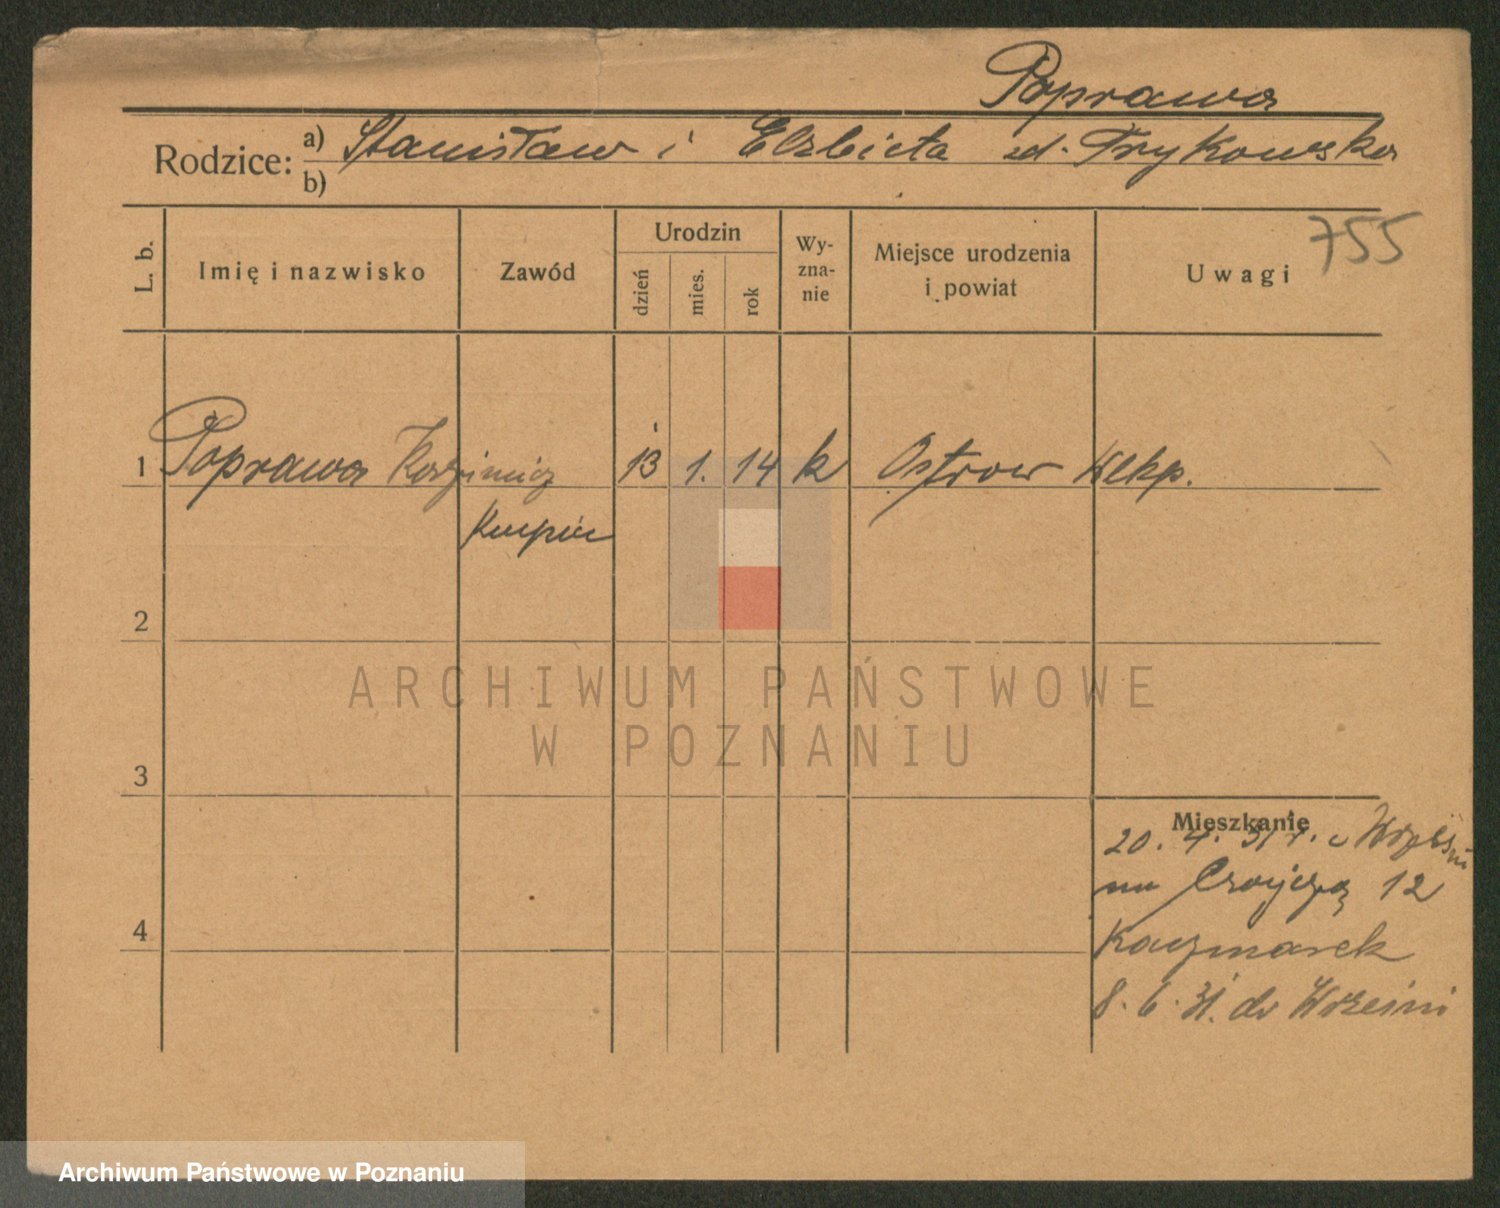 Poprawa
Rodzice: a) Stanisław i Elżbieta zd. Frykowska
b)
755
L. b.
Imię i nazwisko
Zawód
Urodzin
dzień
mies.
rok
Wy-
zna-
nie
Miejsce urodzenia
i powiat
Uwagi
1 Poprawa Kazimierz 13 1. 14 k Ostrow Wlkp.
2
3
Mieszkanie
20. 4. 31 r. z Wrześni
na 12
4
Kaczmarek
8. 6. 31. do Wrześni
ARCHIWUM PAŃSTWOWE
W POZNANIU
Archiwum Państwowe w Poznaniu